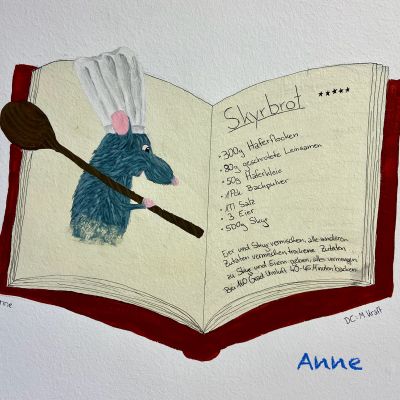 Skyrbrot *****
• 300g Haferflocken
• 80g geschrotete Leinsamen
• 50g Haferkleie
• 1 Pck Backpulver
• 1 Tl Salz
• 3 Eier
• 500g Skyr
Eier und Skyr vermischen, alle anderen
Zutaten vermischen trockene Zutaten
zu Skyr und Eiern geben, alles vermengen
Bei 160 Grad Umluft 40-45 Minuten backen
DC: M
Anne